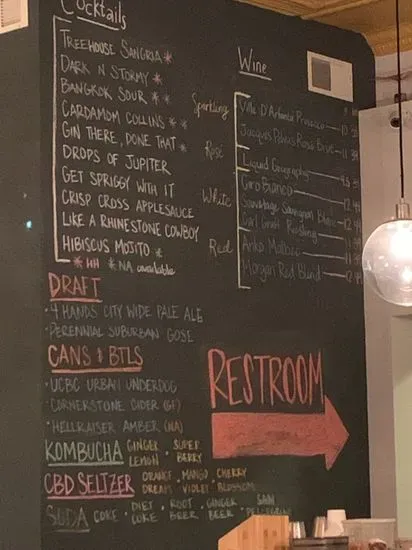 Cocktails
TREEHOUSE SANGRIA *
DARK N STORMY *
BANGKOK SOUR * *
CARDAMOM COLLINS * *
GIN THERE, DONE THAT *
DROPS OF JUPITER
GET SPRIGGY WITH IT
CRISP CROSS APPLESAUCE
LIKE A RHINESTONE COWBOY
HIBISCUS MOJITO *
* HH * NA available
Wine
Sparkling
Villa D'Artanta Prosecco
Jacques Rosé Brut
Rosé
Liquid Geography
White
Giro Bianco
Sauvignon
Carl Graff Riesling
Red
Anko Malbec
Morgan Red Blend
DRAFT
• 4 HANDS CITY WIDE PALE ALE
• PERENNIAL SUBURBAN GOSE
CANS & BTLS
• UCBC URBAN UNDERDOG
• CORNERSTONE CIDER (GF)
• HELLRAISER AMBER (NA)
KOMBUCHA GINGER LEMON • SUPER BERRY
CBD SELTZER ORANGE DREAM • MANGO VIOLET • CHERRY BLOSSOM
SODA COKE • DIET COKE • ROOT BEER • GINGER BEER • SAN PELLEGRINO
RESTROOM